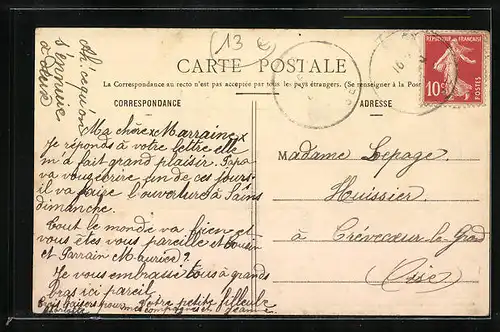 (13 e)
CARTE POSTALE
La Correspondance au recto n'est pas acceptée par tous les pays étrangers. (Se renseigner à la Poste
CORRESPONDANCE
ADRESSE
REPUBLIQUE FRANÇAISE
10c
Ah. ce qu'on
s'ennuie
à deux
Ma chère Marraine
Je réponds à votre lettre elle
m'a fait grand plaisir. Papa
va vous écrire un de ces jours.
il va faire l'ouverture à Sains
dimanche.
Tout le monde va bien et
vous êtes vous pareille et cousin
et Parrain Maurice?
Je vous embrasse tous à grands
bras ici pareil
Votre petite filleule
Jeanne
Madame Lepage
Huissier
à Crévecœur-le-Grand
Oise